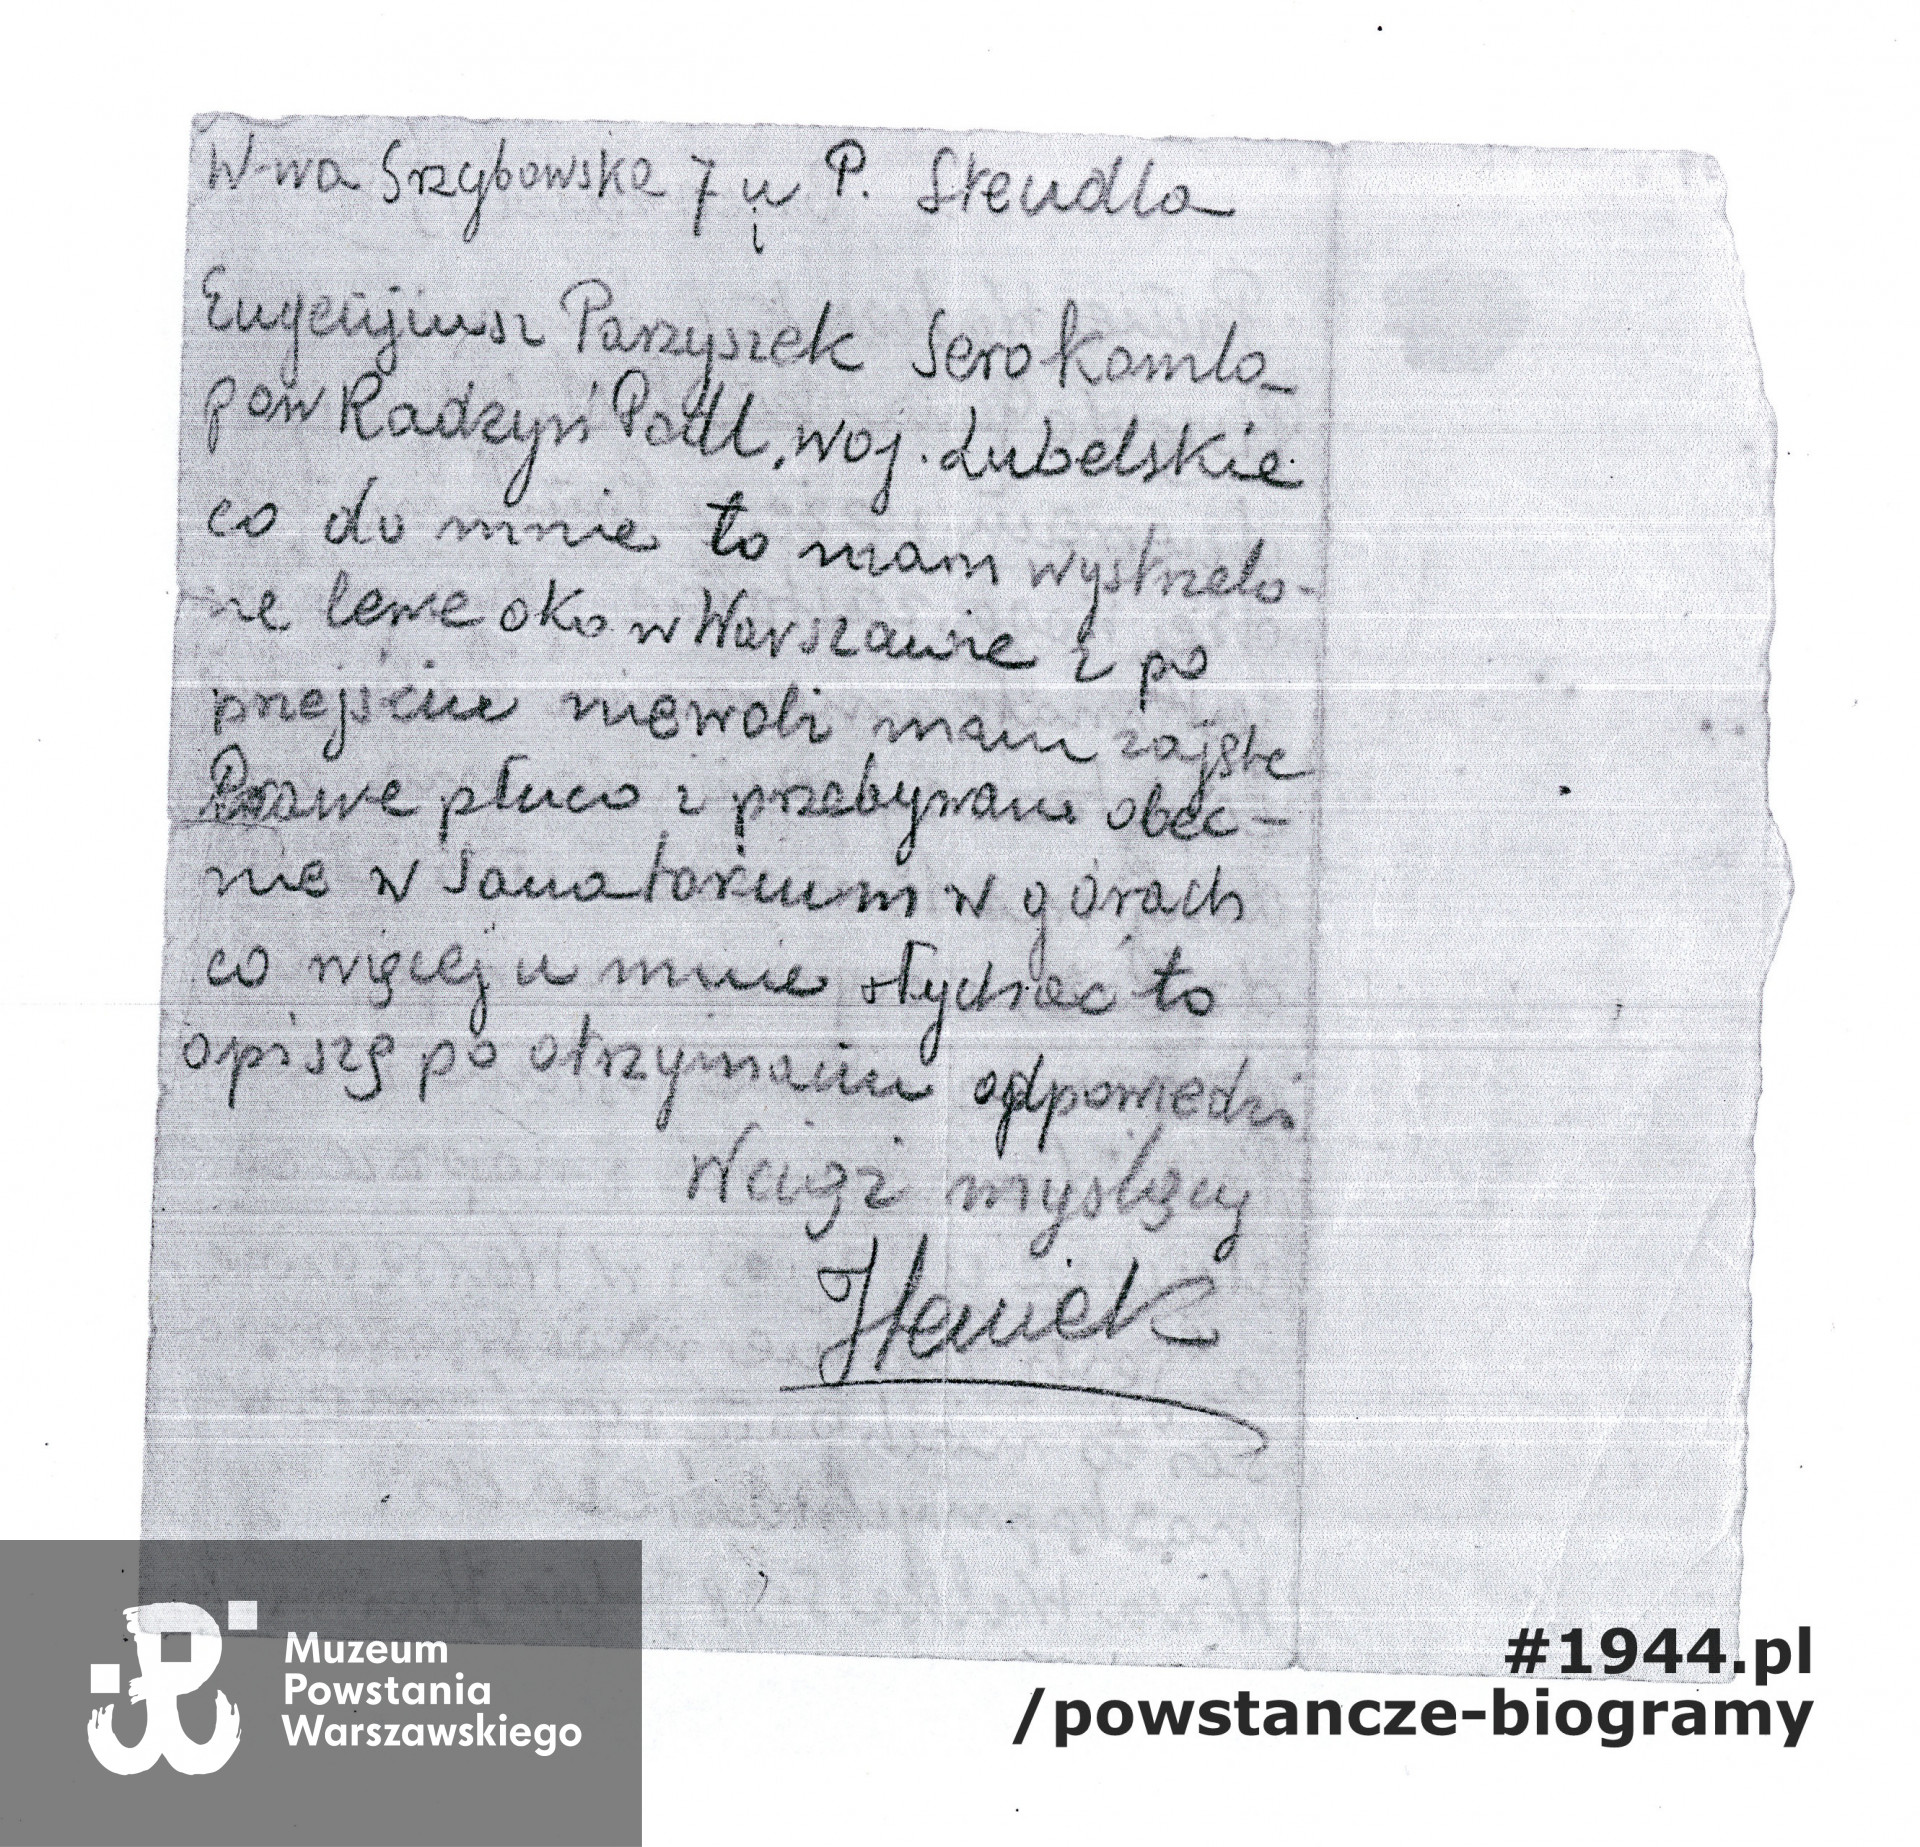 W-wa Grzybowska 7 u P. Steudla
Eugenjusz Parzyszek Serokomla
pow Radzyń Podl, woj. Lubelskie
co do mnie to mam wystrzelo-
ne lewe oko w Warszawie i po
przejściu niewoli mam zajęte
Prawe płuco i przebywam obec-
nie w Sanatorium w górach
co więcej u mnie słychać to
opiszę po otrzymaniu odpowiedzi
Wciąż myślący
Heniek
Muzeum
Powstania
Warszawskiego
#1944.pl
/powstancze-biogramy